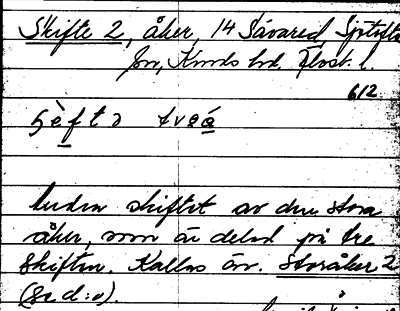 Skifte 2, åker, 14 Sävared Sjötofta
Jon, Knuds bd.
612
Andra skiftet av den stora
åker, som är delad på tre
skiften. Kallas äv. Storåker 2
(se d:o).